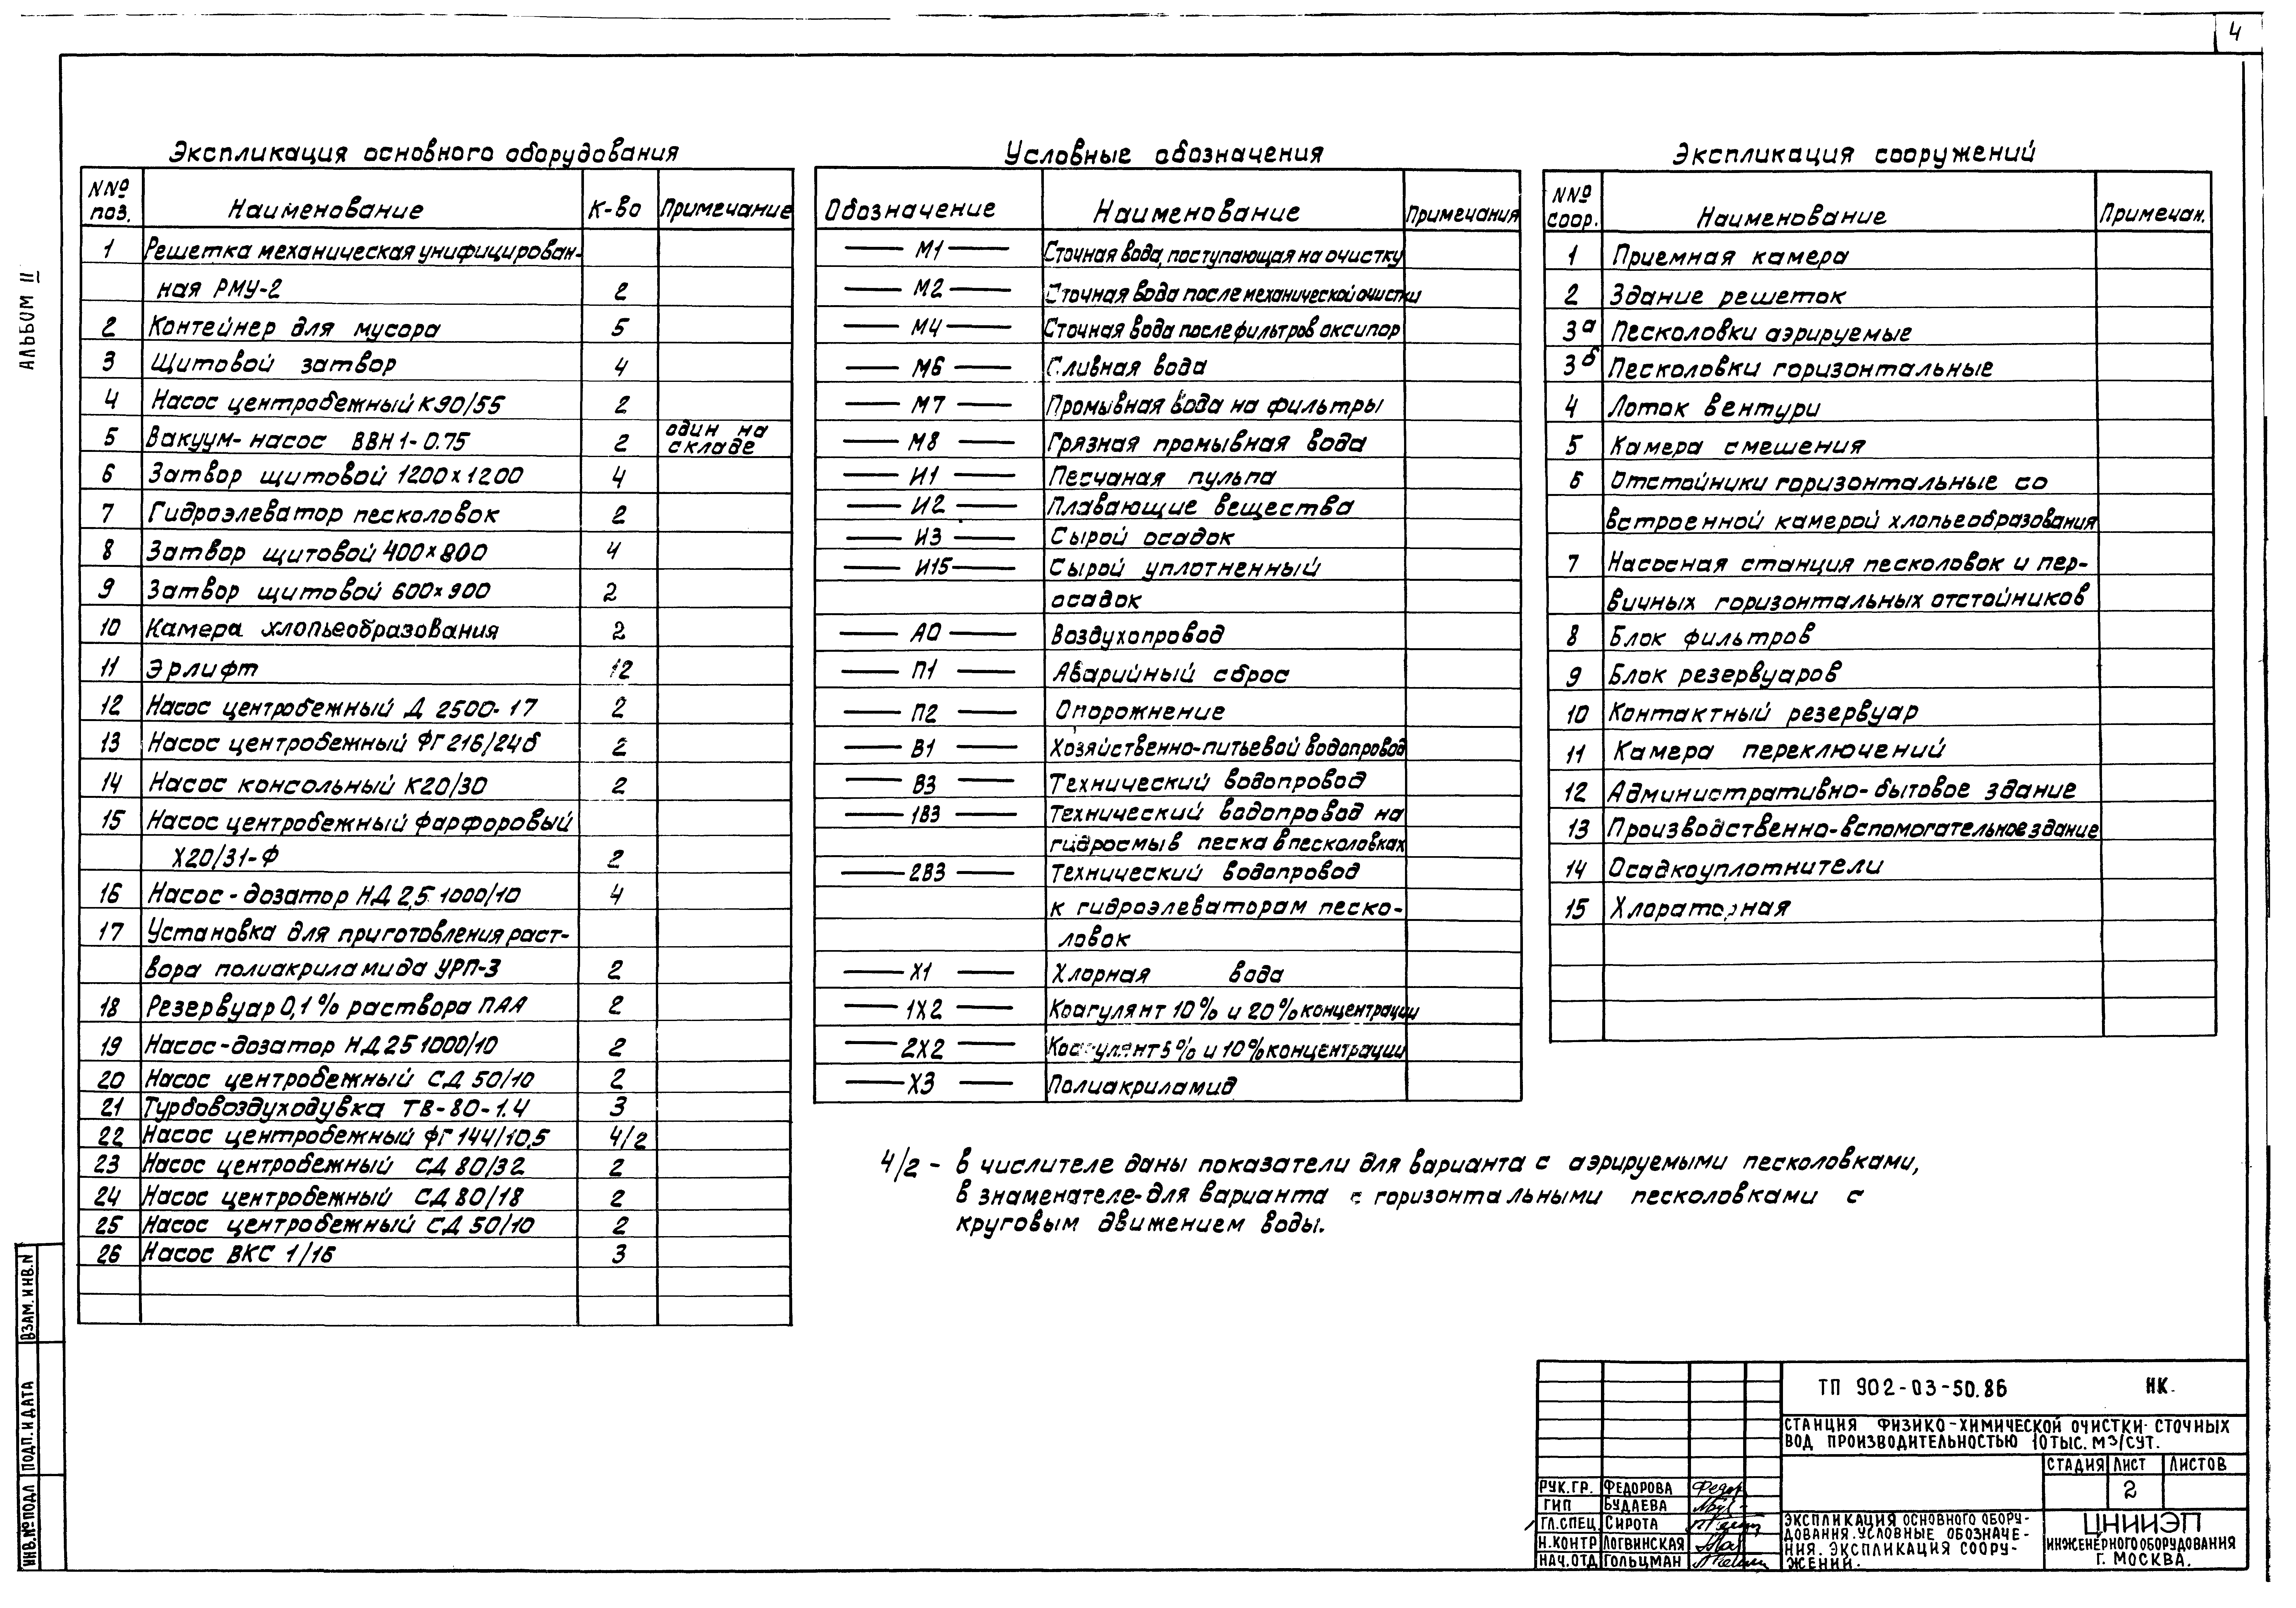 4
АЛЬБОМ II
Экспликация основного оборудования
NNº поз. Наименование К-во Примечание
1 Решетка механическая унифицирован-
ная РМУ-2 2
2 Контейнер для мусора 5
3 Щитовой затвор 4
4 Насос центробежный К90/55 2
5 Вакуум-насос ВВН1-0.75 2 один на складе
6 Затвор щитовой 1200х1200 4
7 Гидроэлеватор песколовок 2
8 Затвор щитовой 400х800 4
9 Затвор щитовой 600х900 2
10 Камера хлопьеобразования 2
11 Эрлифт 12
12 Насос центробежный Д 2500-17 2
13 Насос центробежный ФГ216/24б 2
14 Насос консольный К20/30 2
15 Насос центробежный фарфоровый
Х20/31-Ф 2
16 Насос-дозатор НД 2,5 1000/10 4
17 Установка для приготовления раст-
вора полиакриламида УРП-3 2
18 Резервуар 0,1% раствора ПАА 2
19 Насос-дозатор НД25 1000/10 2
20 Насос центробежный СД 50/10 2
21 Турбовоздуходувка ТВ-80-1.4 3
22 Насос центробежный ФГ144/10,5 4/2
23 Насос центробежный СД 80/32 2
24 Насос центробежный СД 80/18 2
25 Насос центробежный СД 50/10 2
26 Насос ВКС 1/16 3
Условные обозначения
Обозначение Наименование Примечания
М1 Сточная вода, поступающая на очистку
М2 Сточная вода после механической очистки
М4 Сточная вода после фильтров оксипор
М6 Сливная вода
М7 Промывная вода на фильтры
М8 Грязная промывная вода
И1 Песчаная пульпа
И2 Плавающие вещества
И3 Сырой осадок
И15 Сырой уплотненный
осадок
А0 Воздухопровод
П1 Аварийный сброс
П2 Опорожнение
В1 Хозяйственно-питьевой водопровод
В3 Технический водопровод
1В3 Технический водопровод на
гидросмыв песка в песколовках
2В3 Технический водопровод
к гидроэлеваторам песко-
ловок
Х1 Хлорная вода
1Х2 Коагулянт 10% и 20% концентрации
2Х2 Коагулянт 5% и 10% концентрации
Х3 Полиакриламид
Экспликация сооружений
NNº соор. Наименование Примечан.
1 Приемная камера
2 Здание решеток
3а Песколовки аэрируемые
3б Песколовки горизонтальные
4 Лоток вентури
5 Камера смешения
6 Отстойники горизонтальные со
встроенной камерой хлопьеобразования
7 Насосная станция песколовок и пер-
вичных горизонтальных отстойников
8 Блок фильтров
9 Блок резервуаров
10 Контактный резервуар
11 Камера переключений
12 Административно-бытовое здание
13 Производственно-вспомогательное здание
14 Осадкоуплотнители
15 Хлораторная
4/2 - в числителе даны показатели для варианта с аэрируемыми песколовками,
в знаменателе-для варианта с горизонтальными песколовками с
круговым движением воды.
ВЗАМ. ИНВ. N
ПОДП. И ДАТА
ИНВ. №ПОДЛ
ТП 902-03-50.86 НК.
СТАНЦИЯ ФИЗИКО-ХИМИЧЕСКОЙ ОЧИСТКИ СТОЧНЫХ
ВОД ПРОИЗВОДИТЕЛЬНОСТЬЮ 10 ТЫС. М3/СУТ.
СТАДИЯ ЛИСТ ЛИСТОВ
2
РУК.ГР. ФЕДОРОВА
ГИП БУДАЕВА
ГЛ.СПЕЦ. СИРОТА
Н.КОНТР ЛОГВИНСКАЯ
НАЧ.ОТД ГОЛЬЦМАН
ЭКСПЛИКАЦИЯ ОСНОВНОГО ОБОРУ-
ДОВАНИЯ. УСЛОВНЫЕ ОБОЗНАЧЕ-
НИЯ. ЭКСПЛИКАЦИЯ СООРУ-
ЖЕНИЙ.
ЦНИИЭП
ИНЖЕНЕРНОГО ОБОРУДОВАНИЯ
Г. МОСКВА.